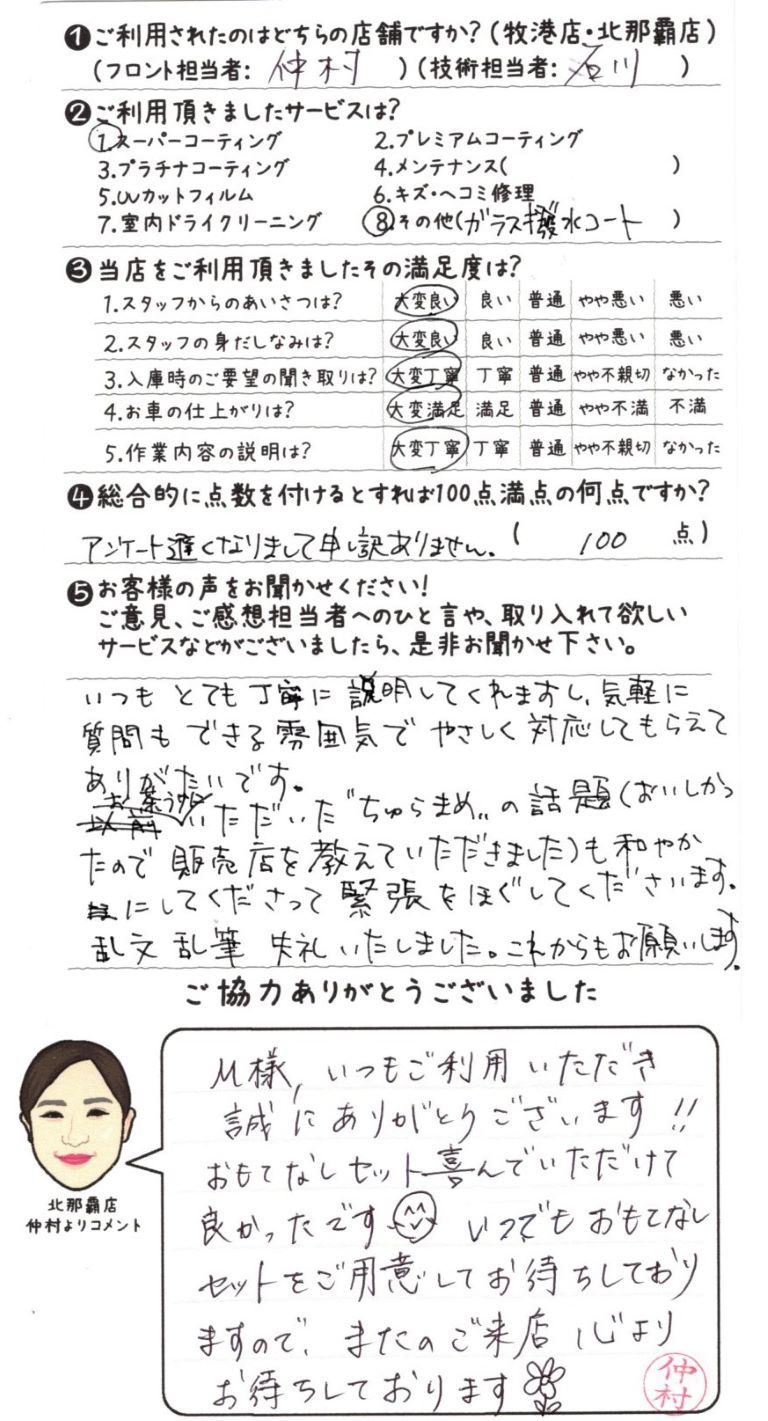 ❶ご利用されたのはどちらの店舗ですか？(牧港店・北那覇店)
(フロント担当者: 仲村 )(技術担当者: 石川 )
❷ご利用頂きましたサービスは？
1.スーパーコーティング 2.プレミアムコーティング
3.プラチナコーティング 4.メンテナンス( )
5.UVカットフィルム 6.キズ・ヘコミ修理
7.室内ドライクリーニング 8.その他(ガラス撥水コート )
❸当店をご利用頂きましたその満足度は？
1.スタッフからのあいさつは？ 大変良い 良い 普通 やや悪い 悪い
2.スタッフの身だしなみは？ 大変良い 良い 普通 やや悪い 悪い
3.入庫時のご要望の聞き取りは？ 大変丁寧 丁寧 普通 やや不親切 なかった
4.お車の仕上がりは？ 大変満足 満足 普通 やや不満 不満
5.作業内容の説明は？ 大変丁寧 丁寧 普通 やや不親切 なかった
❹総合的に点数を付けるとすれば100点満点の何点ですか？
アンケート遅くなりまして申し訳ありません。 ( 100 点)
❺お客様の声をお聞かせください！
ご意見、ご感想担当者へのひと言や、取り入れて欲しい
サービスなどがございましたら、是非お聞かせ下さい。
いつも とても丁寧に 説明してくれますし、気軽に
質問も できる 雰囲気で やさしく 対応してもらえて
ありがたいです。
お茶うけに
以前 いただいた"ちゅらまめ"の話題(おいしかっ
たので 販売店を教えていただきました)も和やか
にしてくださって 緊張をほぐしてくださいます。
乱文乱筆 失礼いたしました。これからもお願いします。
ご協力ありがとうございました
M様, いつもご利用いただき
誠にありがとうございます!!
おもてなしセット喜んでいただけて
良かったです いつでもおもてなし
セットをご用意してお待ちしており
ますので、またのご来店 心より
お待ちしております
北那覇店
仲村よりコメント
仲村